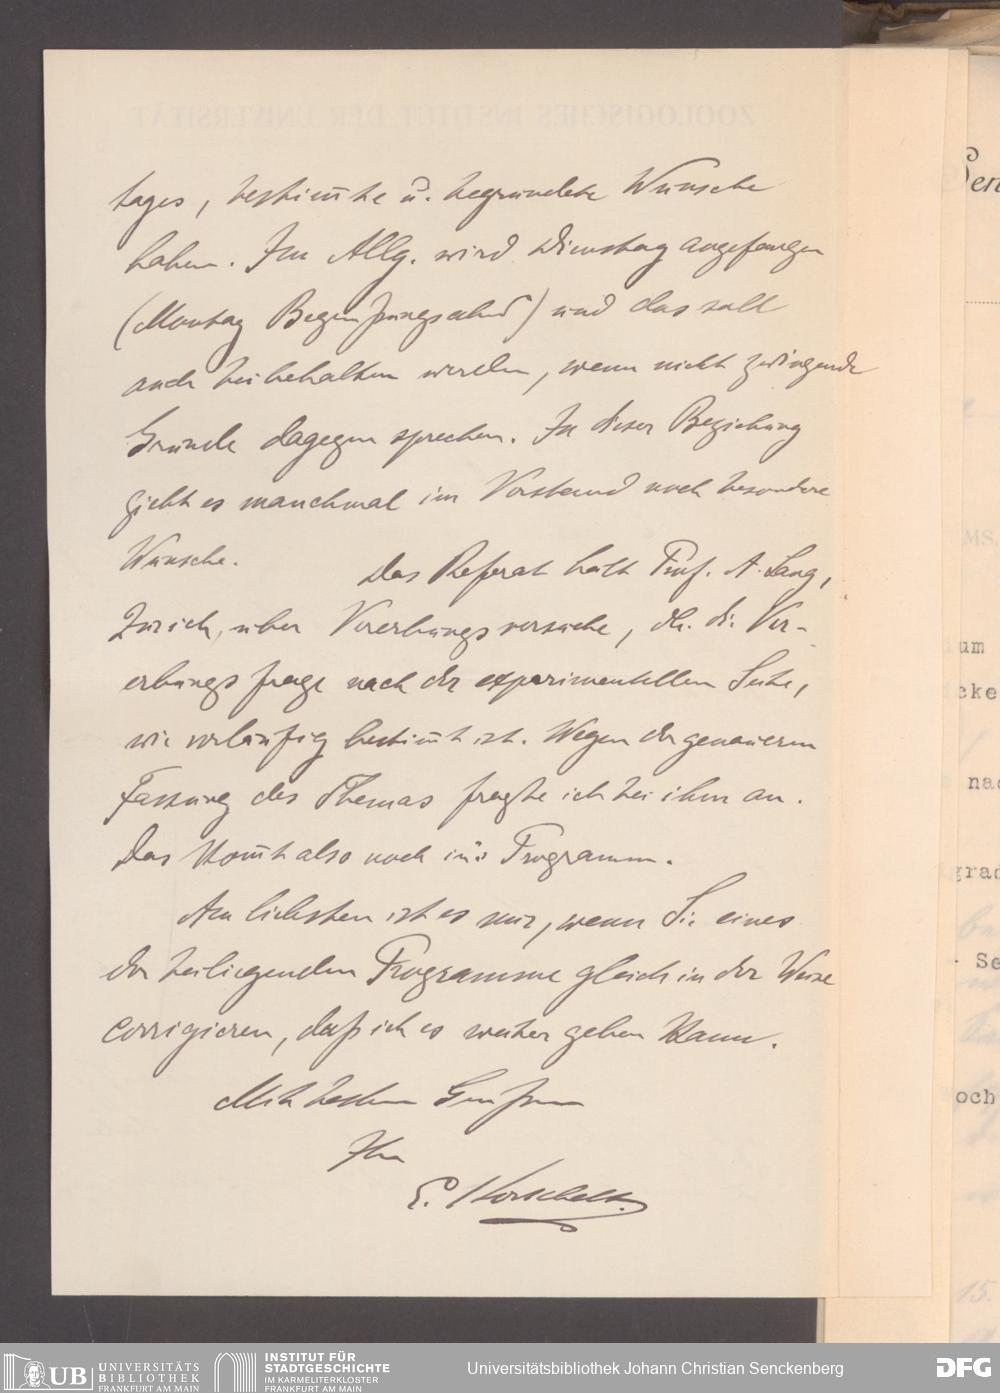 tages, bestim̅te u. begründete Wünsche
haben. Im Allg. wird Dienstag angefangen
(Montag Begrüßungsabend) und das soll
auch beibehalten werden, wenn nicht zwingende
Gründe dagegen sprechen. In dieser Beziehung
giebt es manchmal im Vorstand noch besondere
Wünsche. Das Referat hält Prof. A. Lang,
Zürich, über Vererbungsversuche, dh. die Ver-
erbungsfrage nach der experimentellen Seite,
wie vorläufig bestim̅t ist. Wegen der genaueren
Fassung des Themas fragte ich bei ihm an.
Das kom̅t also noch in's Programm.
Am liebsten ist es mir, wenn Sie eines
der beiliegenden Programme gleich in der Weise
corrigieren, daß ich es weiter geben kann.
Mit besten Grüßen
Ihr
E. Korschelt.
um
cke
nac
grad
- Se
och
15.
UB UNIVERSITÄTS
BIBLIOTHEK
FRANKFURT AM MAIN
INSTITUT FÜR
STADTGESCHICHTE
IM KARMELITERKLOSTER
FRANKFURT AM MAIN
Universitätsbibliothek Johann Christian Senckenberg
DFG